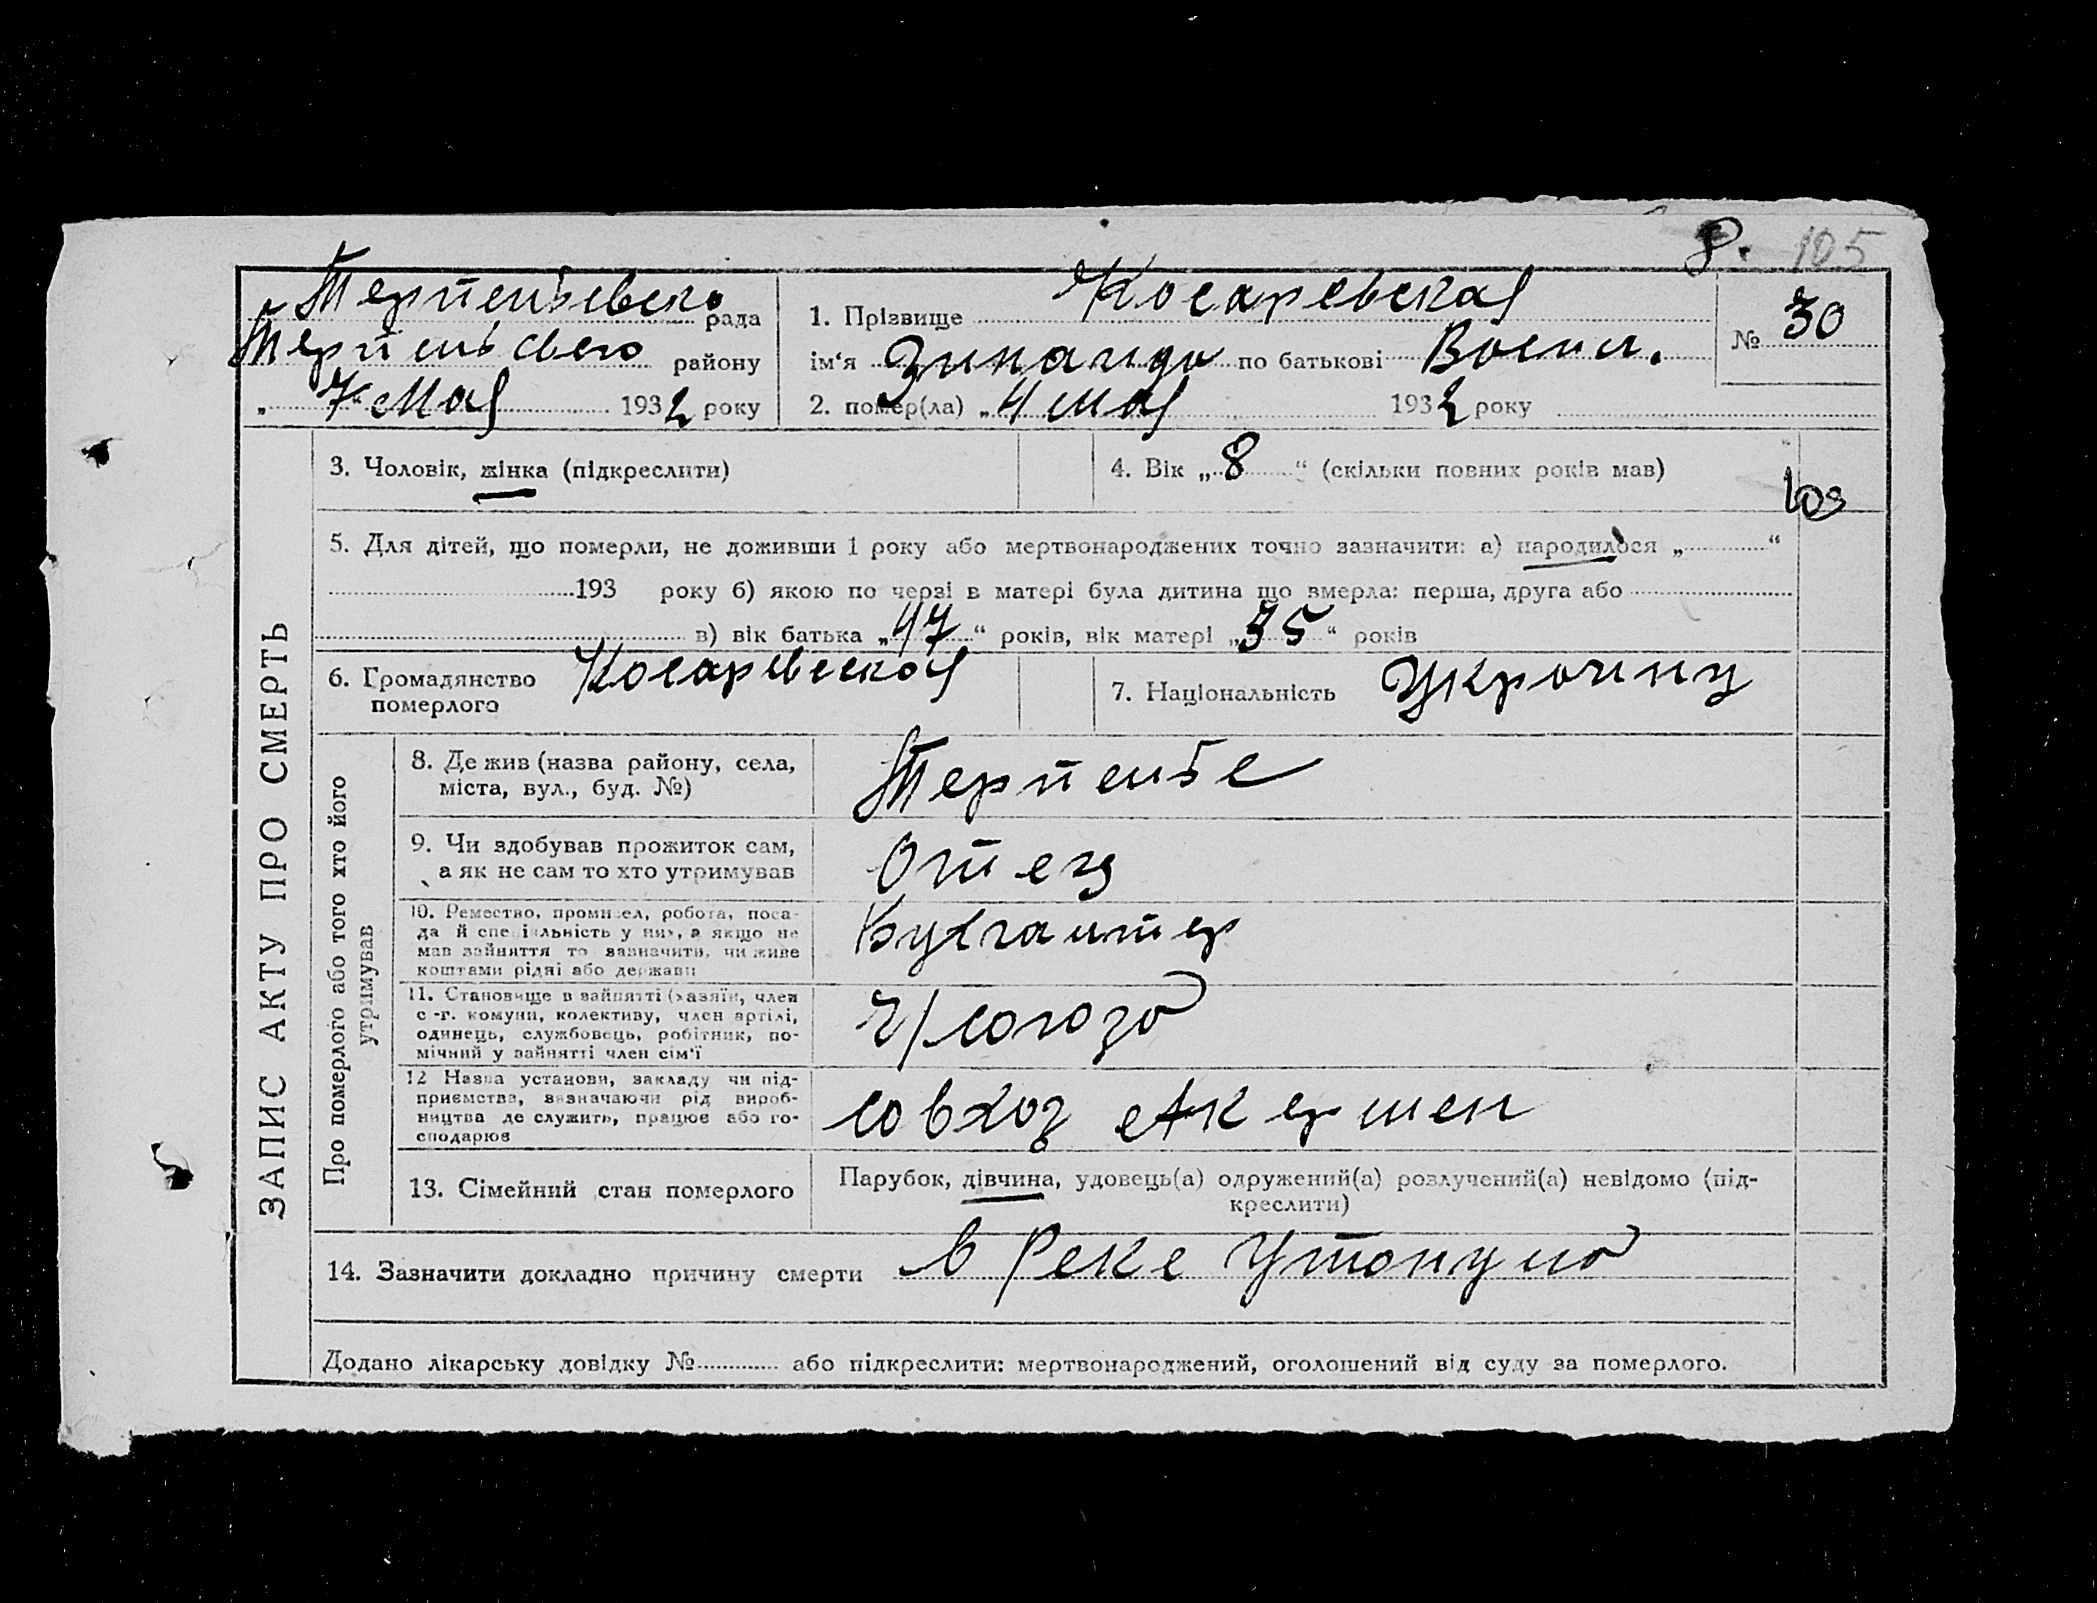 8. 105
Терпеньевск рада
Терпеньевого району
„ 7 “ Мая 1932 року
1. Прізвище Косаревская
ім‘я Зинаида по батькові Васил.
2. помер(ла) „ 4 мая 1932 року
№ 30
ЗАПИС АКТУ ПРО СМЕРТЬ
3. Чоловік, жінка (підкреслити)
4. Вік „ 8 “ (скільки повних років мав)
103
5. Для дітей, що померли, не доживши 1 року або мертвонароджених точно зазначити: а) народилося „ “
193 року б) якою по черзі в матері була дитина що вмерла: перша, друга або
в) вік батька „ 47 “ років, вік матері „ 35 “ років
6. Громадянство
померлого
Косаревская
7. Національність Украинц
Про померлого або того хто його
утримував
8. Де жив (назва району, села,
міста, вул., буд. №)
Терпенье
9. Чи здобував прожиток сам,
а як не сам то хто утримував
Отец
10. Ремество, промисел, робота, поса-
да й спеціяльність у них, а якщо не
мав зайняття то зазначити, чи живе
коштами рідні або держави
Бухгалтер
11. Становище в зайнятті (хазяїн, член
с-г. комуни, колективу, член артілі,
одинець, службовець, робітник, по-
мічний у зайнятті член сім‘ї
ч/союза
12 Назва установи, закладу чи під-
приємства, зазначаючи рід вироб-
ництва де служить, працює або го-
сподарює
совхоз Акермен
13. Сімейний стан померлого
Парубок, дівчина, удовець(а) одружений(а) розлучений(а) невідомо (під-
креслити)
14. Зазначити докладно причину смерти в Реке Утонула
Додано лікарську довідку № або підкреслити: мертвонароджений, оголошений від суду за померлого.